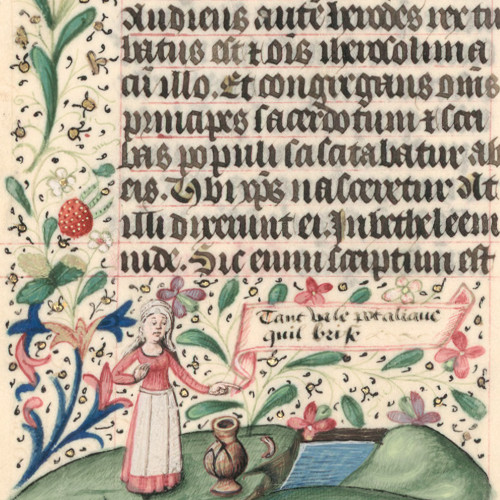 Audiens autē herodes rex tur
batus est ⁊ oīs iherosolima
cū illo. Et congregans om̄s
principes sacerdotum ⁊ scri
bas populi sciscitabatur ab
eis. Vbi xp̄s nasceretur At
illi dixerunt ei In betheleem
iude. Sic enim scriptum est
Tant va le pot a liaue
quil brise